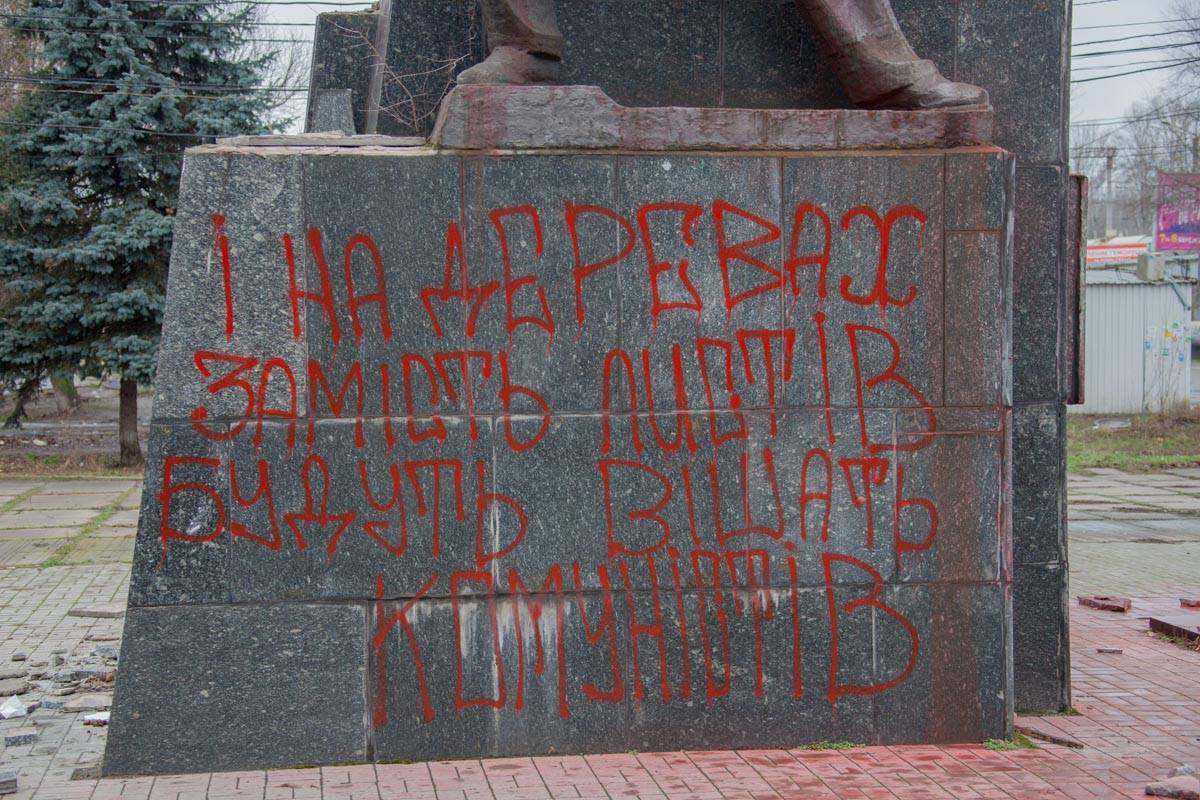 І НА ДЕРЕВАХ
ЗАМІСТЬ ЛИСТІВ
БУДУТЬ ВІШАТЬ
КОМУНІСТІВ